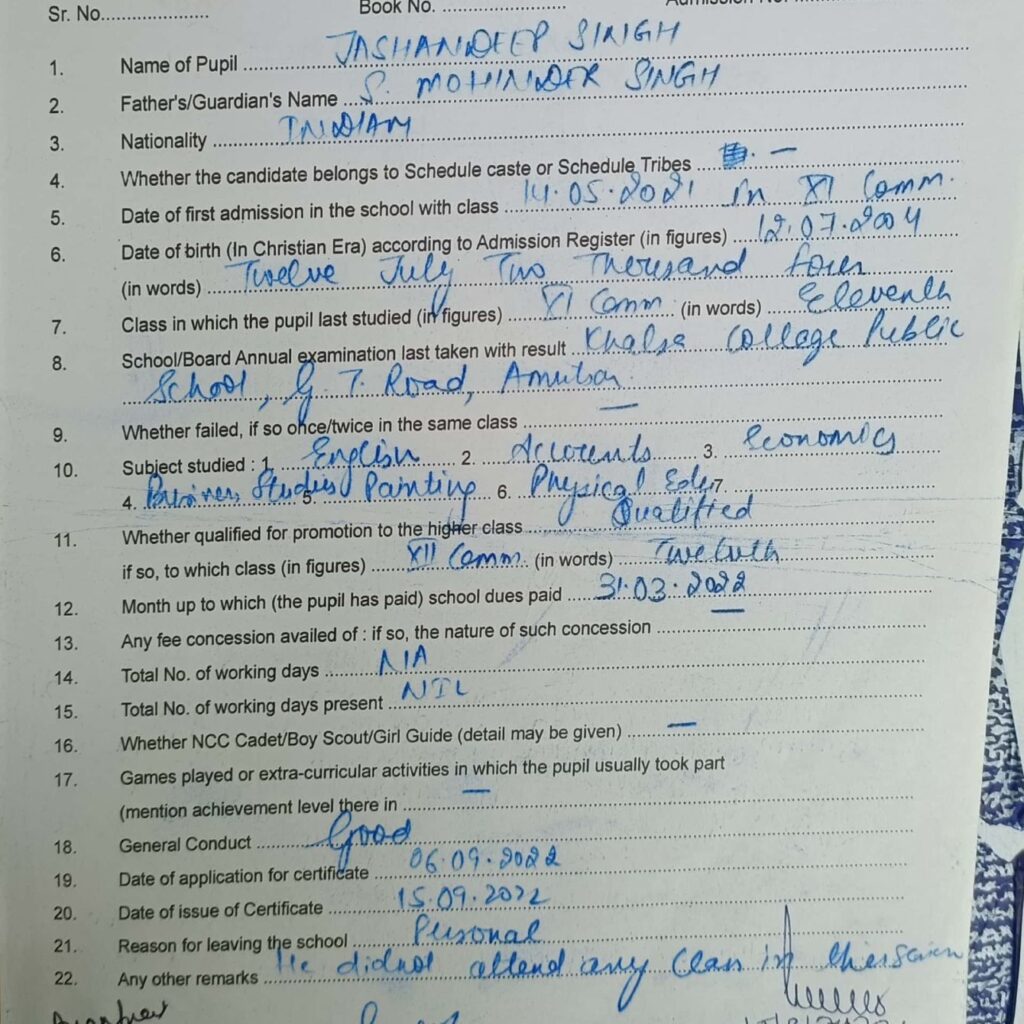 Sr. No.....................
Book No. .........................
1. Name of Pupil JASHANDEEP SINGH
2. Father's/Guardian's Name S. MOHINDER SINGH
3. Nationality INDIAN
4. Whether the candidate belongs to Schedule caste or Schedule Tribes —
5. Date of first admission in the school with class 14.05.2021 in XI Comm.
6. Date of birth (In Christian Era) according to Admission Register (in figures) 12.07.2004
(in words) Twelve July Two Thousand four
7. Class in which the pupil last studied (in figures) XI Comm. (in words) Eleventh
8. School/Board Annual examination last taken with result Khalsa College Public
School, G.T. Road, Amritsar.
9. Whether failed, if so once/twice in the same class —
10. Subject studied : 1. English 2. Accounts 3. Economics
4. Business Studies 5. Painting 6. Physical Edu 7.
11. Whether qualified for promotion to the higher class Qualified
if so, to which class (in figures) XII Comm. (in words) Twelveth
12. Month up to which (the pupil has paid) school dues paid 31.03.2022
13. Any fee concession availed of : if so, the nature of such concession —
14. Total No. of working days NIA
15. Total No. of working days present NIL
16. Whether NCC Cadet/Boy Scout/Girl Guide (detail may be given) —
17. Games played or extra-curricular activities in which the pupil usually took part
(mention achievement level there in —
18. General Conduct Good
19. Date of application for certificate 06.09.2022
20. Date of issue of Certificate 15.09.2022
21. Reason for leaving the school Personal
22. Any other remarks He didnot attend any Class in this